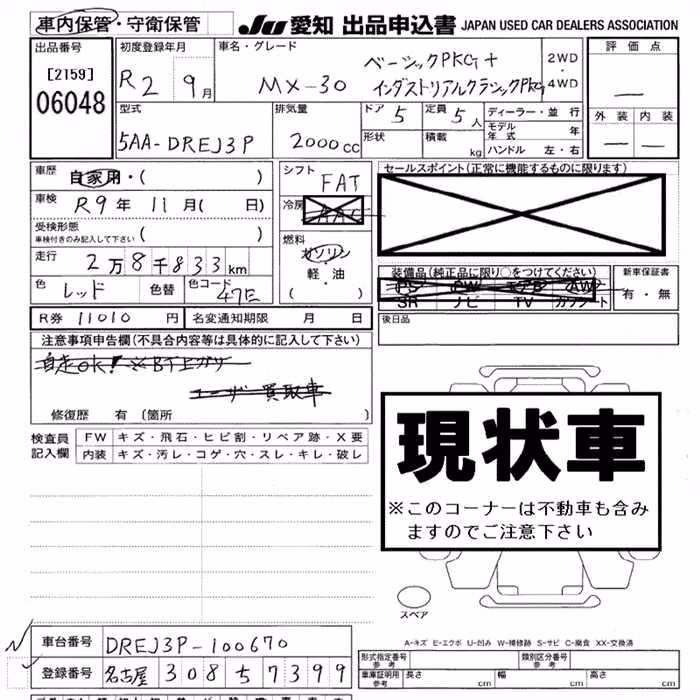 車内保管・守衛保管
JU 愛知 出品申込書 JAPAN USED CAR DEALERS ASSOCIATION
出品番号
[2159]
06048
初度登録年月
R2 9月
車名・グレード
MX-30
ベーシックPKG+
インダストリアルクラシックPKG
2WD
・
4WD
評価点
—
外装 内装
— —
型式
5AA-DREJ3P
排気量
2000cc
ドア 5
形状
定員 5人
積載 kg
ディーラー・並行
モデル年式 年
ハンドル 左・右
車歴 自家用・( )
車検 R9年11月( 日)
受検形態
車検付きのみ記入して下さい ( )
走行 2万8千833km
色 レッド 色替 色コード 47E
シフト
FAT
冷房
AAC
燃料
ガソリン
・
軽・油
( )
セールスポイント(正常に機能するものに限ります)
装備品(純正品に限り○をつけてください)
PS PW エアB AW
SR ナビ TV カワシート
新車保証書
有・無
R券 11010 円 名変通知期限 月 日
後日品
注意事項申告欄(不具合内容等は具体的に記入して下さい)
自走ok!※BT上ガリ
ユーザー買取車
修復歴 有〔箇所 〕
検査員
記入欄
FW キズ・飛石・ヒビ割・リペア跡・X要
内装 キズ・汚レ・コゲ・穴・スレ・キレ・破レ
現状車
※このコーナーは不動車も含み
ますのでご注意下さい
スペア
A-キズ E-エクボ U-凹み W-補修跡 S-サビ C-腐食 XX-交換済
車台番号 DREJ3P-100670
登録番号 名古屋 308 ち 7399
形式指定番号
参考
類別区分番号
参考
車庫証明用
参考
長さ cm 幅 cm 高さ cm